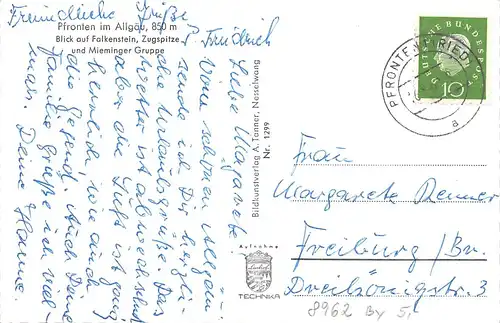 Freundliche Grüße
Friedrich
Pfronten im Allgäu, 850 m
Blick auf Falkenstein, Zugspitze
und Mieminger Gruppe
Liebe Margarete
Vom schönen Allgäu
sende ich Dir herzli-
che Urlaubsgrüße. Das
Wetter ist abwechslnd
aber die Luft ist ganz
herrlich wie auch
die Gegend. Auch Deine
Familie grüße ich viel-
mals. Deine Hanne.
Bildkunstverlag A. Tanner, Nesselwang
Nr. 1299
Aufnahme
TECHNIKA
DEUTSCHE BUNDESPOST
10
PFRONTEN-RIED
a
Frau
Margarete Renner
Freiburg/Br.
Dreikönigstr. 3
8962 By 5,